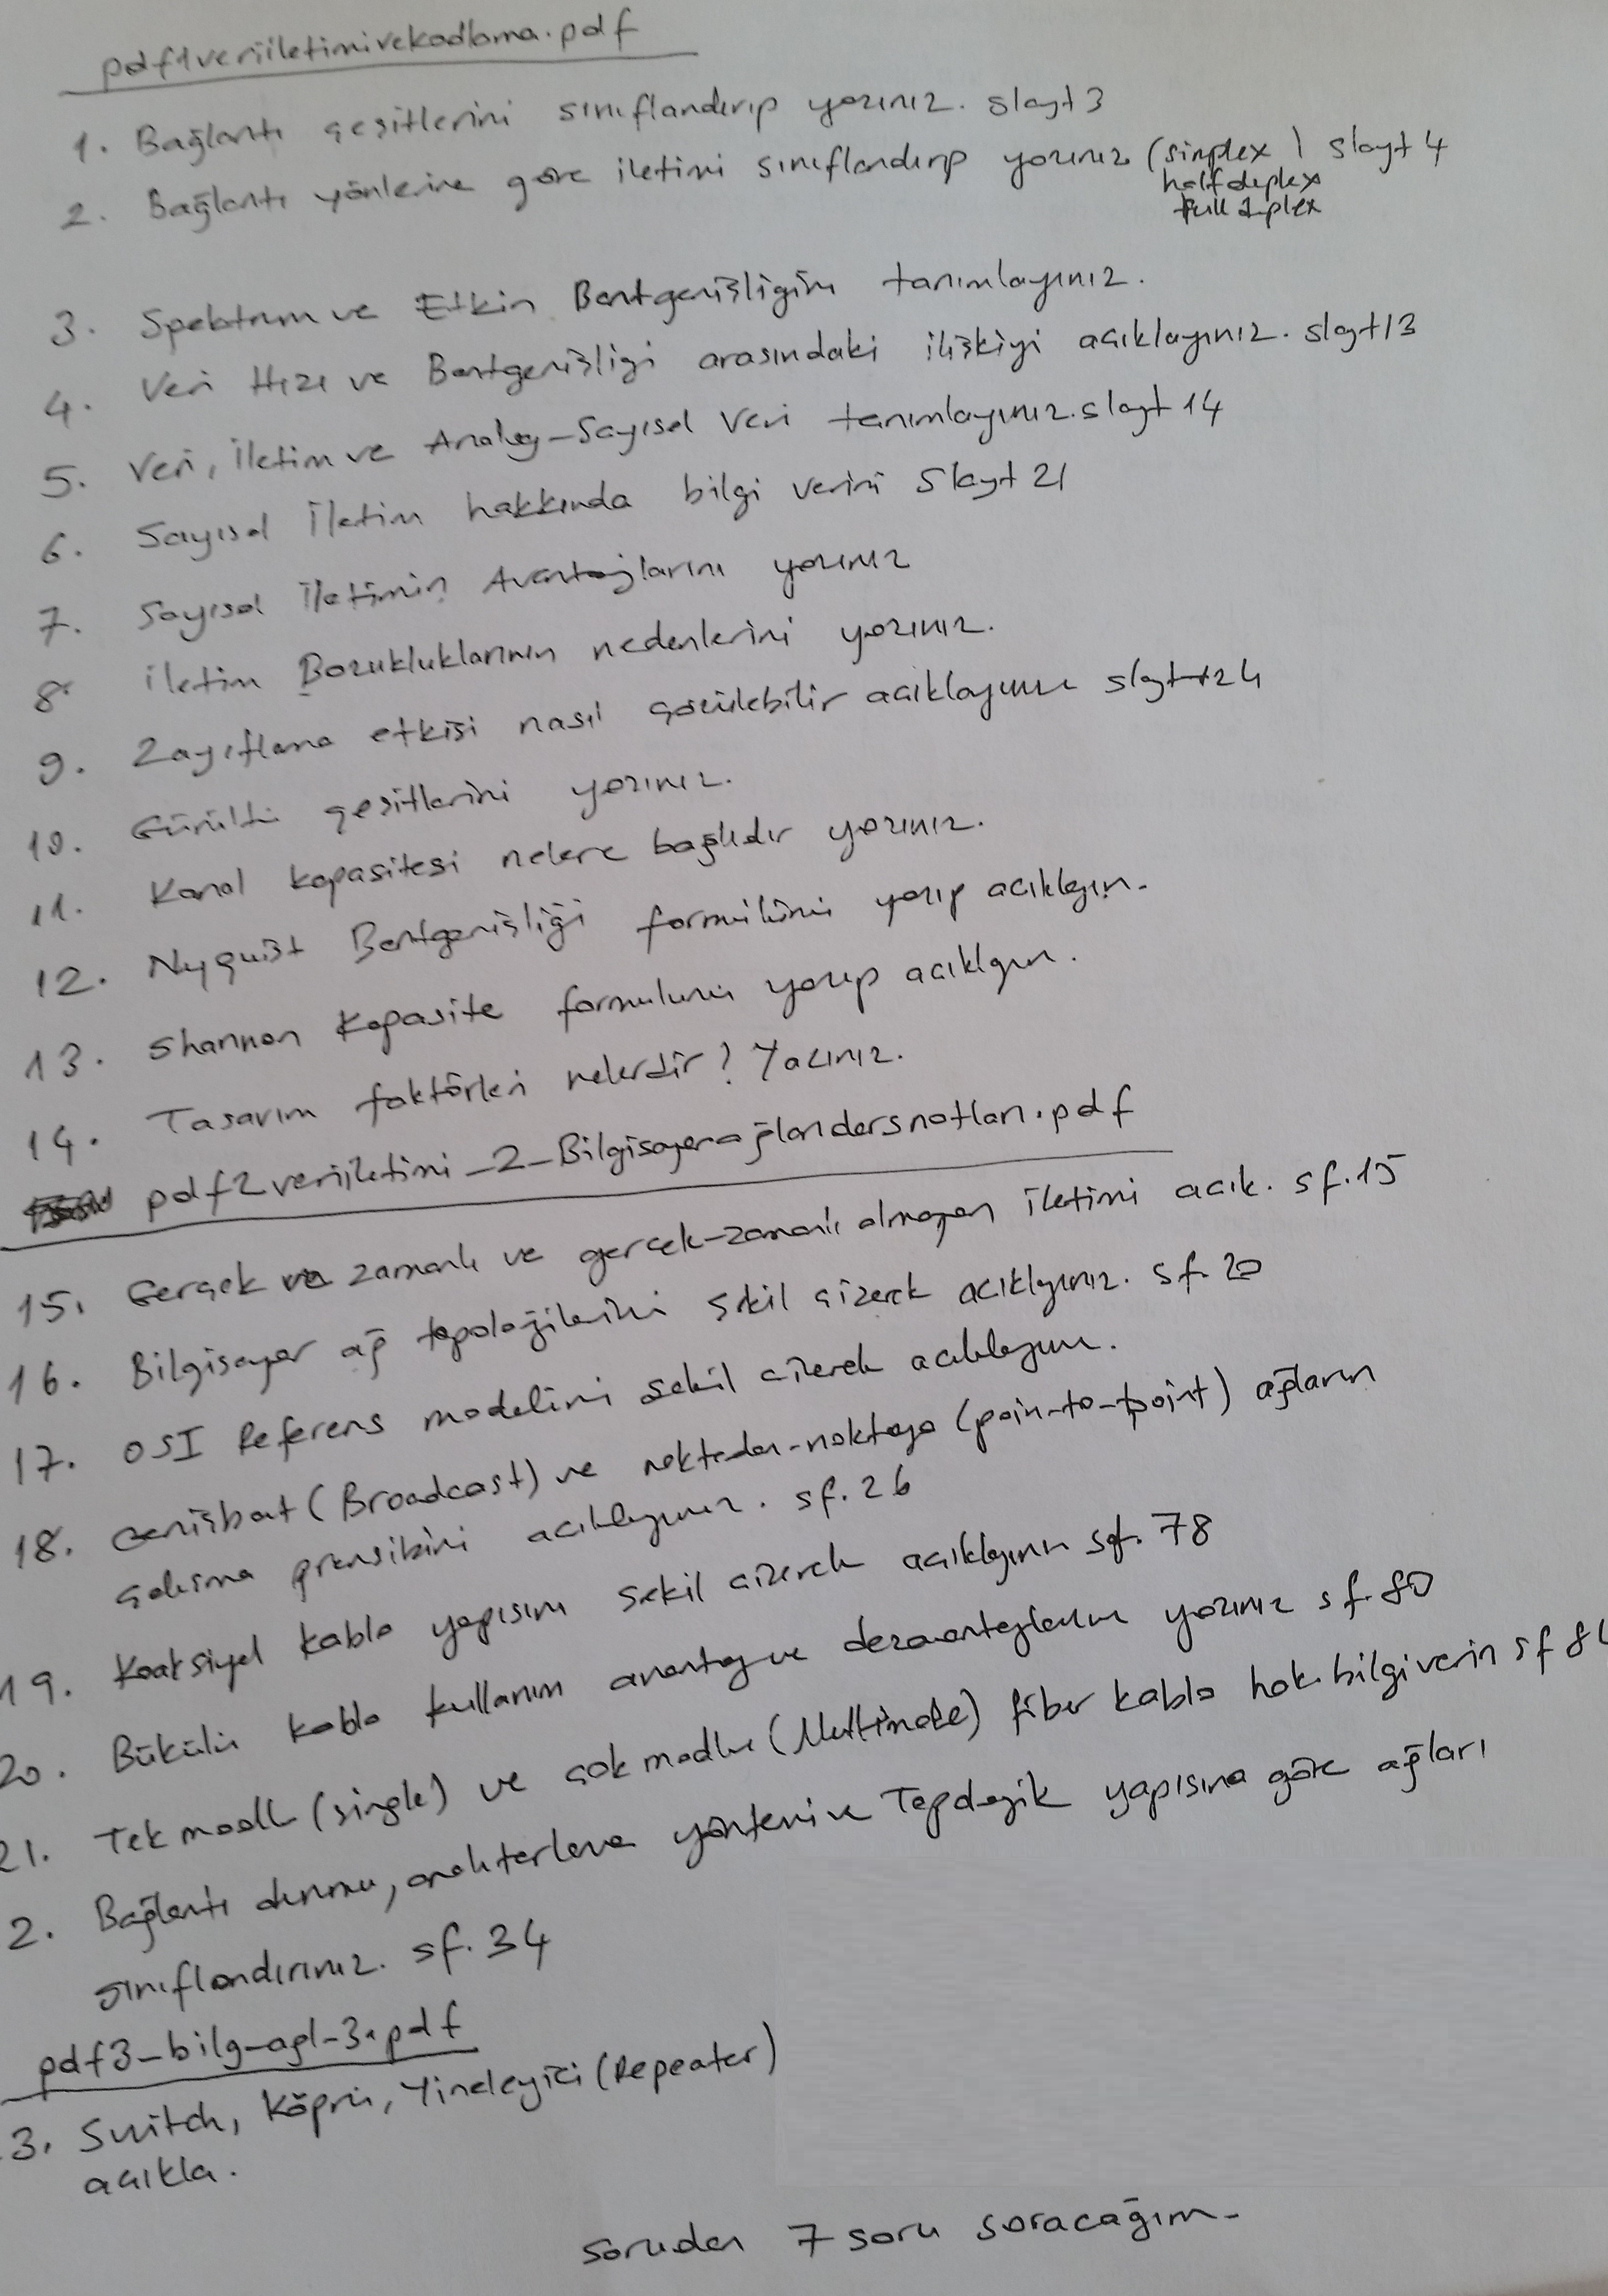 pdf1veriiletimivekodlama.pdf
1. Bağlantı çeşitlerini sınıflandırıp yazınız. slayt 3
2. Bağlantı yönlerine göre iletimi sınıflandırıp yazınız (simplex ) slayt 4
half duplex
full duplex
3. Spektrum ve Etkin Bantgenişliğini tanımlayınız.
4. Veri Hızı ve Bantgenişliği arasındaki ilişkiyi açıklayınız. slayt 13
5. Veri, İletim ve Analog-Sayısal Veri tanımlayınız. slayt 14
6. Sayısal İletim hakkında bilgi verini slayt 21
7. Sayısal İletimin Avantajlarını yazınız
8. İletim Bozukluklarının nedenlerini yazınız.
9. Zayıflama etkisi nasıl çözülebilir açıklayınız slayt 24
10. Gürültü çeşitlerini yazınız.
11. Kanal kapasitesi nelere bağlıdır yazınız.
12. Nyquist Bantgenişliği formülünü yazıp açıklayın.
13. Shannon Kapasite formulunu yazıp açıklayın.
14. Tasarım faktörleri nelerdir? Yazınız.
pdf2veriiletimi_2_Bilgisayarağlarıdersnotları.pdf
15. Gerçek zamanlı ve gerçek-zamanlı olmayan iletimi açık. sf.15
16. Bilgisayar ağ topolojilerini şekil çizerek açıklayınız. sf. 20
17. OSI Referens modelini şekil çizerek açıklayınız.
18. Genişbant (Broadcast) ve noktadan-noktaya (poin-to-point) ağların
çalışma prensibini açıklayınız. sf. 26
19. Koaksiyel kablo yapısını şekil çizerek açıklayınız sf. 78
20. Bükülü kablo kullanım avantaj ve dezavantajlarını yazınız sf. 80
21. Tek modlu (single) ve çok modlu (Multimode) fiber kablo hak. bilgi verin sf 84
2. Bağlantı durumu, anahtarlama yöntemi ve Topolojik yapısına göre ağları
sınıflandırınız. sf. 34
pdf3-bilg-agl-3.pdf
3. Switch, Köprü, Yineleyici (Repeater)
açıkla.
sorudan 7 soru soracağım.